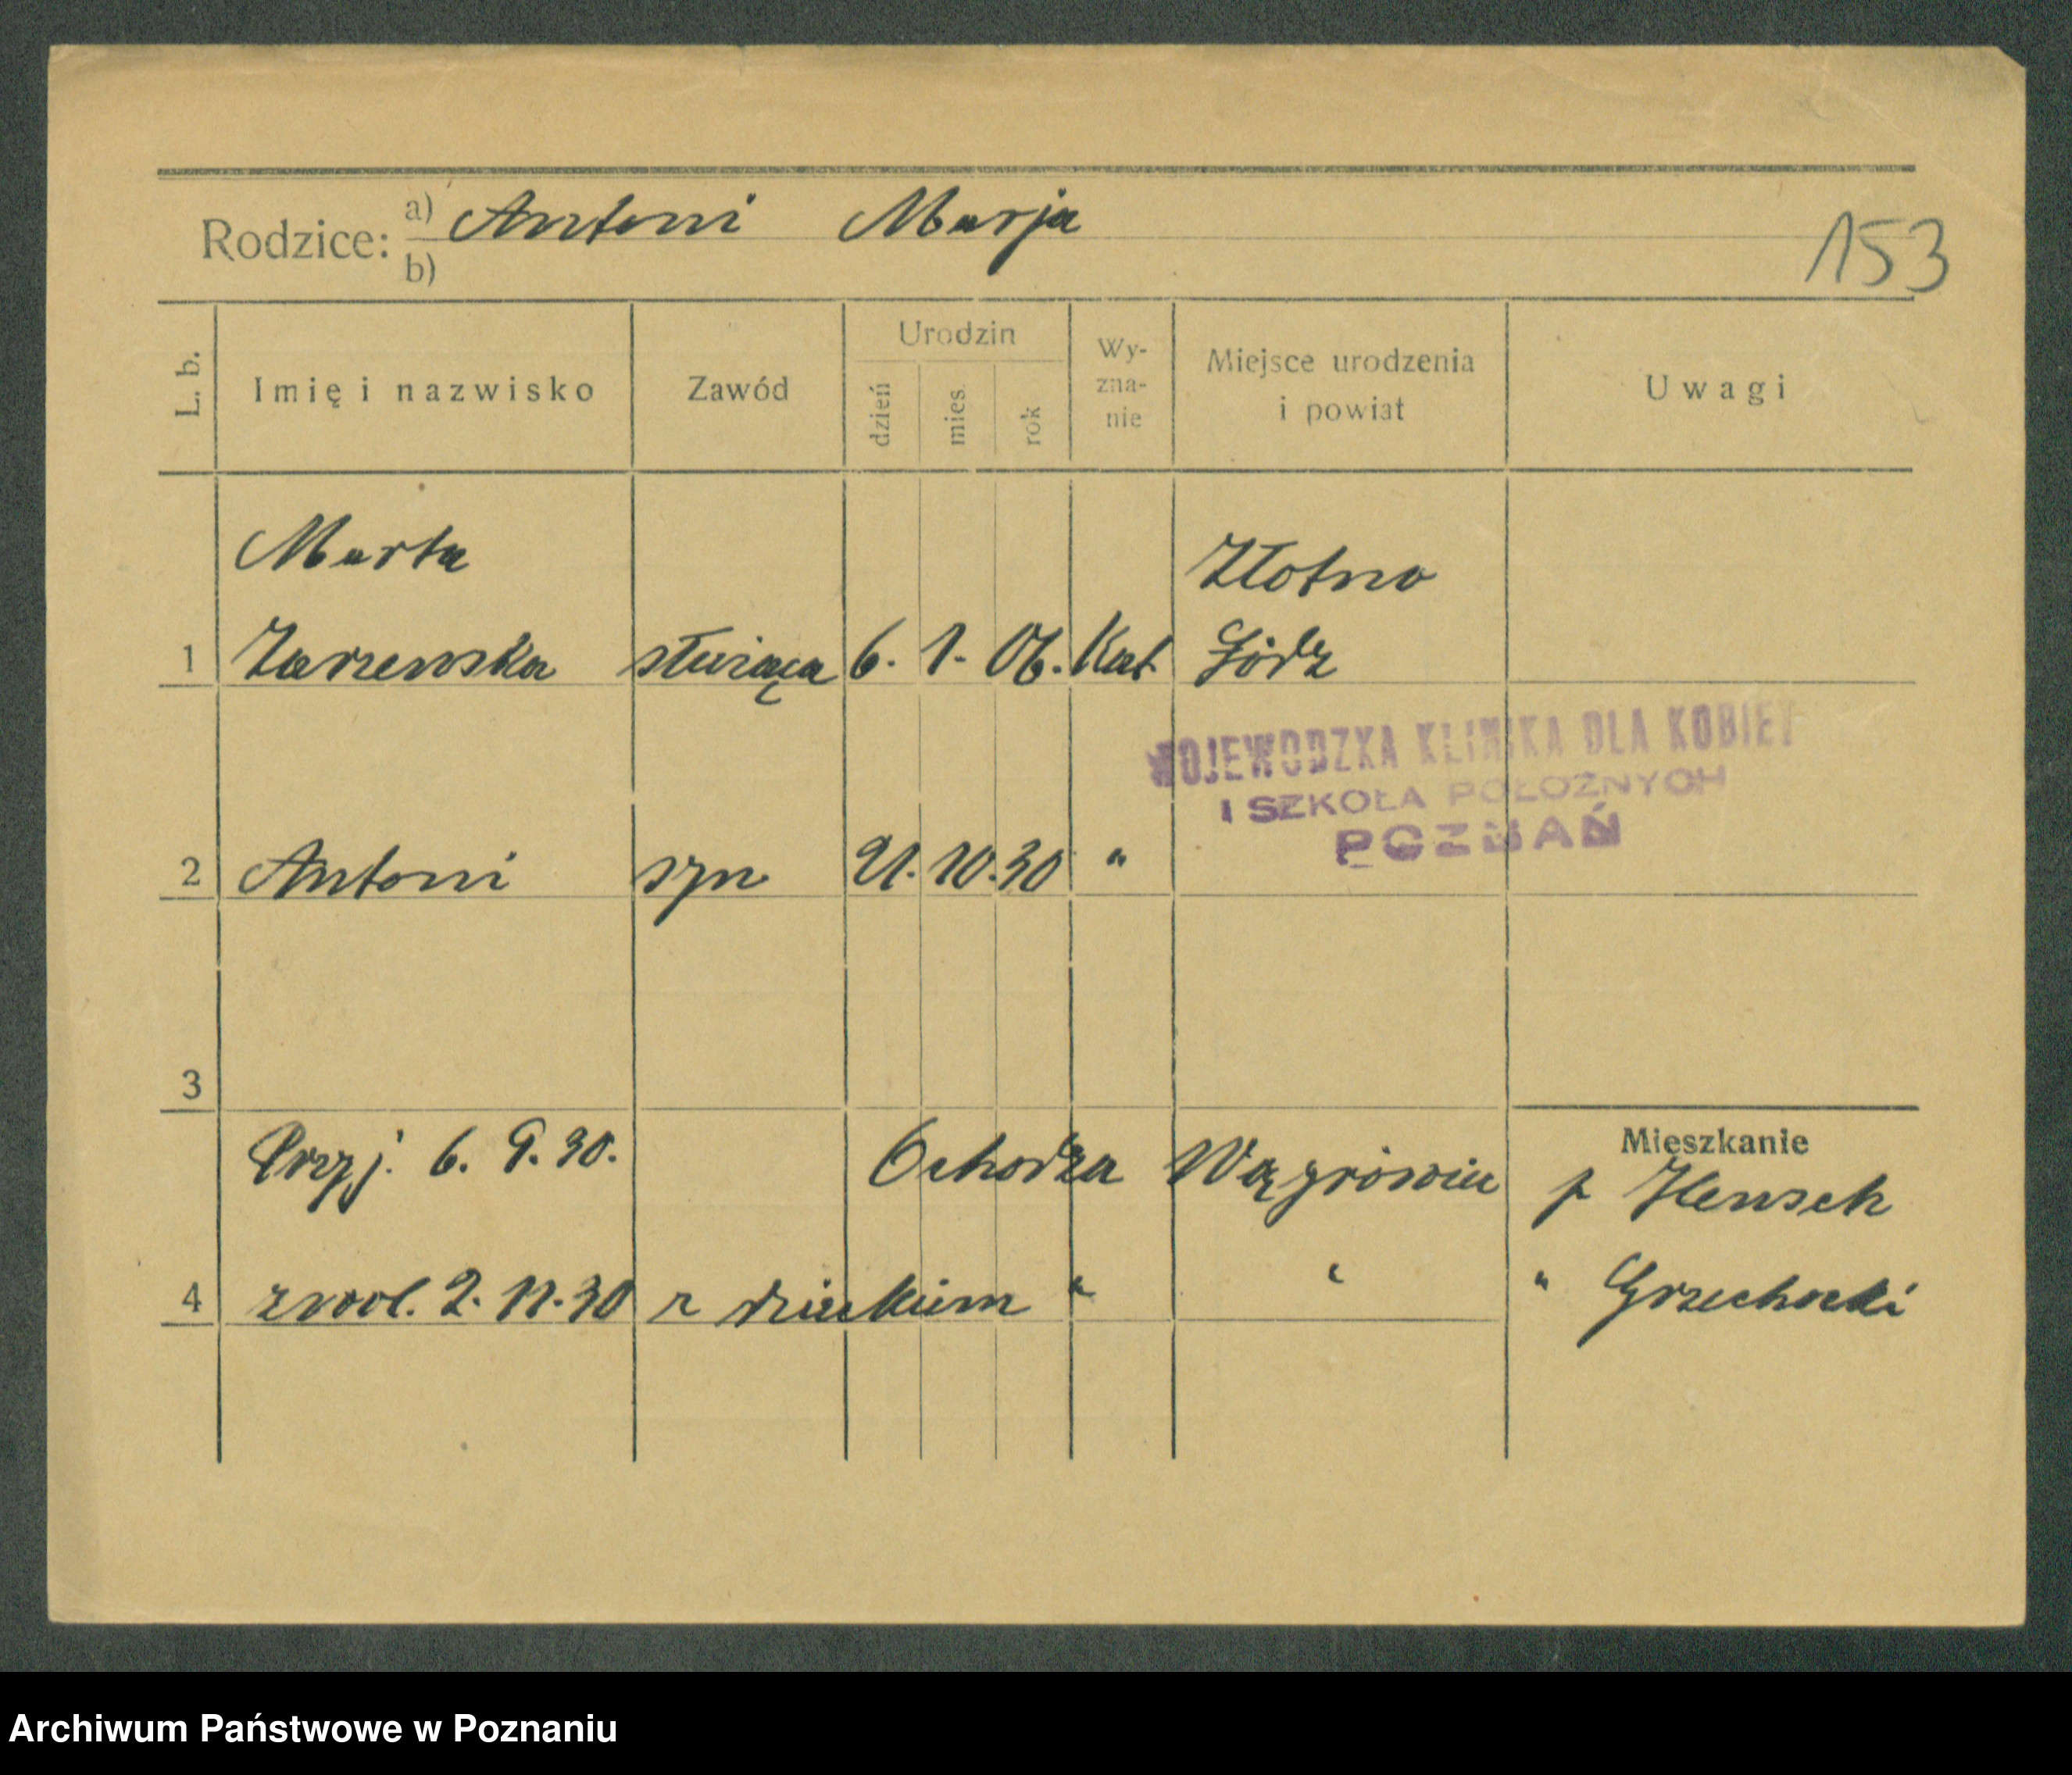 Rodzice: a) Antoni Marja
b)
153
L. b.
Imię i nazwisko
Zawód
Urodzin
dzień
mies.
rok
Wy-
zna-
nie
Miejsce urodzenia
i powiat
Uwagi
Marta
Złotno
1 Zarzewska służąca 6. 1. 06. Kat. Łódz
WOJEWODZKA KLINIKA DLA KOBIET
I SZKOŁA POŁOŻNYCH
POZNAŃ
2 Antoni syn 21. 10. 30 "
3
Mieszkanie
Przyj. 6. 9. 30. Ochodza Wągrówiec p Hensch
4 zwol. 2. 11. 30 z dzieckiem " " " Grzechocki
Archiwum Państwowe w Poznaniu